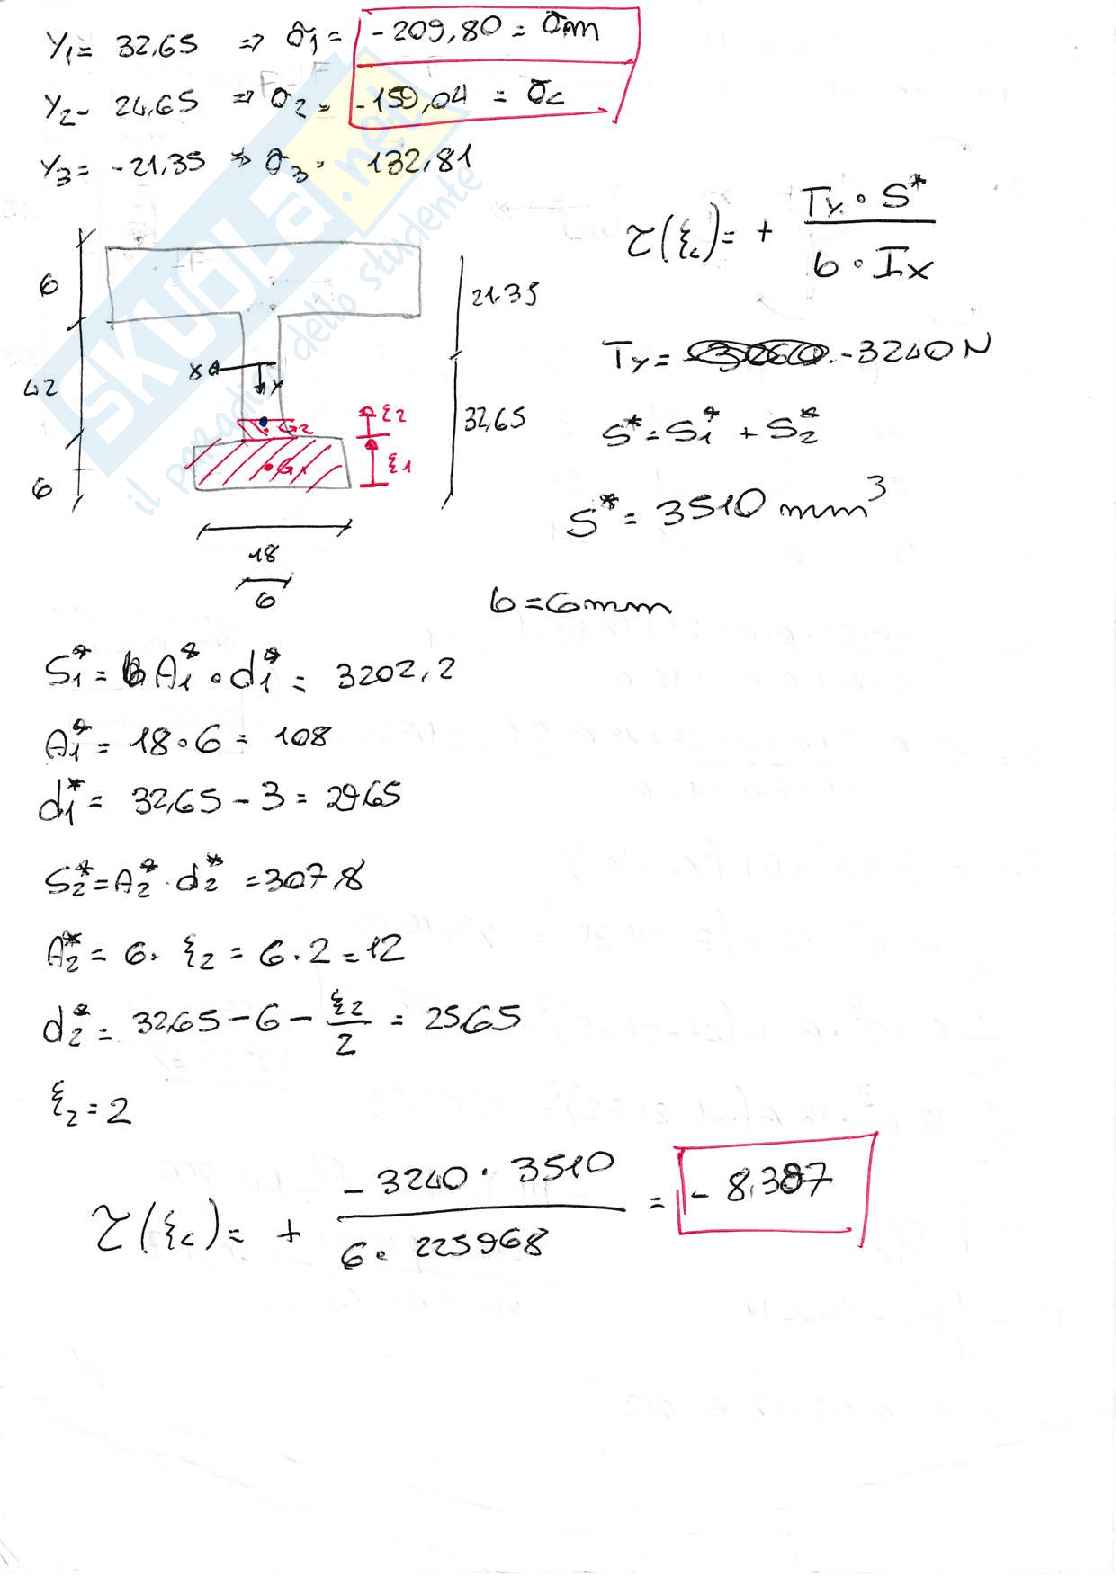 Y1 = 32,65 => σ1 = -209,80 = σm
Y2 - 24,65 => σ2 = -159,04 = σc
Y3 = -21,35 => σ3 = 132,81
SKUOLA.net
il paradiso dello studente
τ(ξc) = + Ty · S* / b · Ix
6
42
6
X
Y
G2
G1
ξ2
ξ1
21,35
32,65
18
6
Ty = -3240 N
S* = S1* + S2*
S* = 3510 mm³
b = 6 mm
S1* = A1* · d1* = 3202,2
A1* = 18 · 6 = 108
d1* = 32,65 - 3 = 29,65
S2* = A2* · d2* = 307,8
A2* = 6 · ξ2 = 6 · 2 = 12
d2* = 32,65 - 6 - ξ2/2 = 25,65
ξ2 = 2
τ(ξc) = + -3240 · 3510 / 6 · 225968 = -8,387